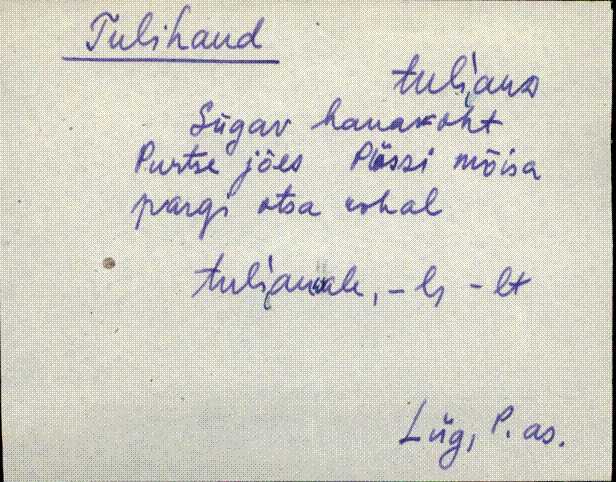 Tulihaud
tulians
Sügav hauakoht
Purtse jões Püssi mõisa
pargi otsa kohal
, -ls -lt
Lüg, P. as.